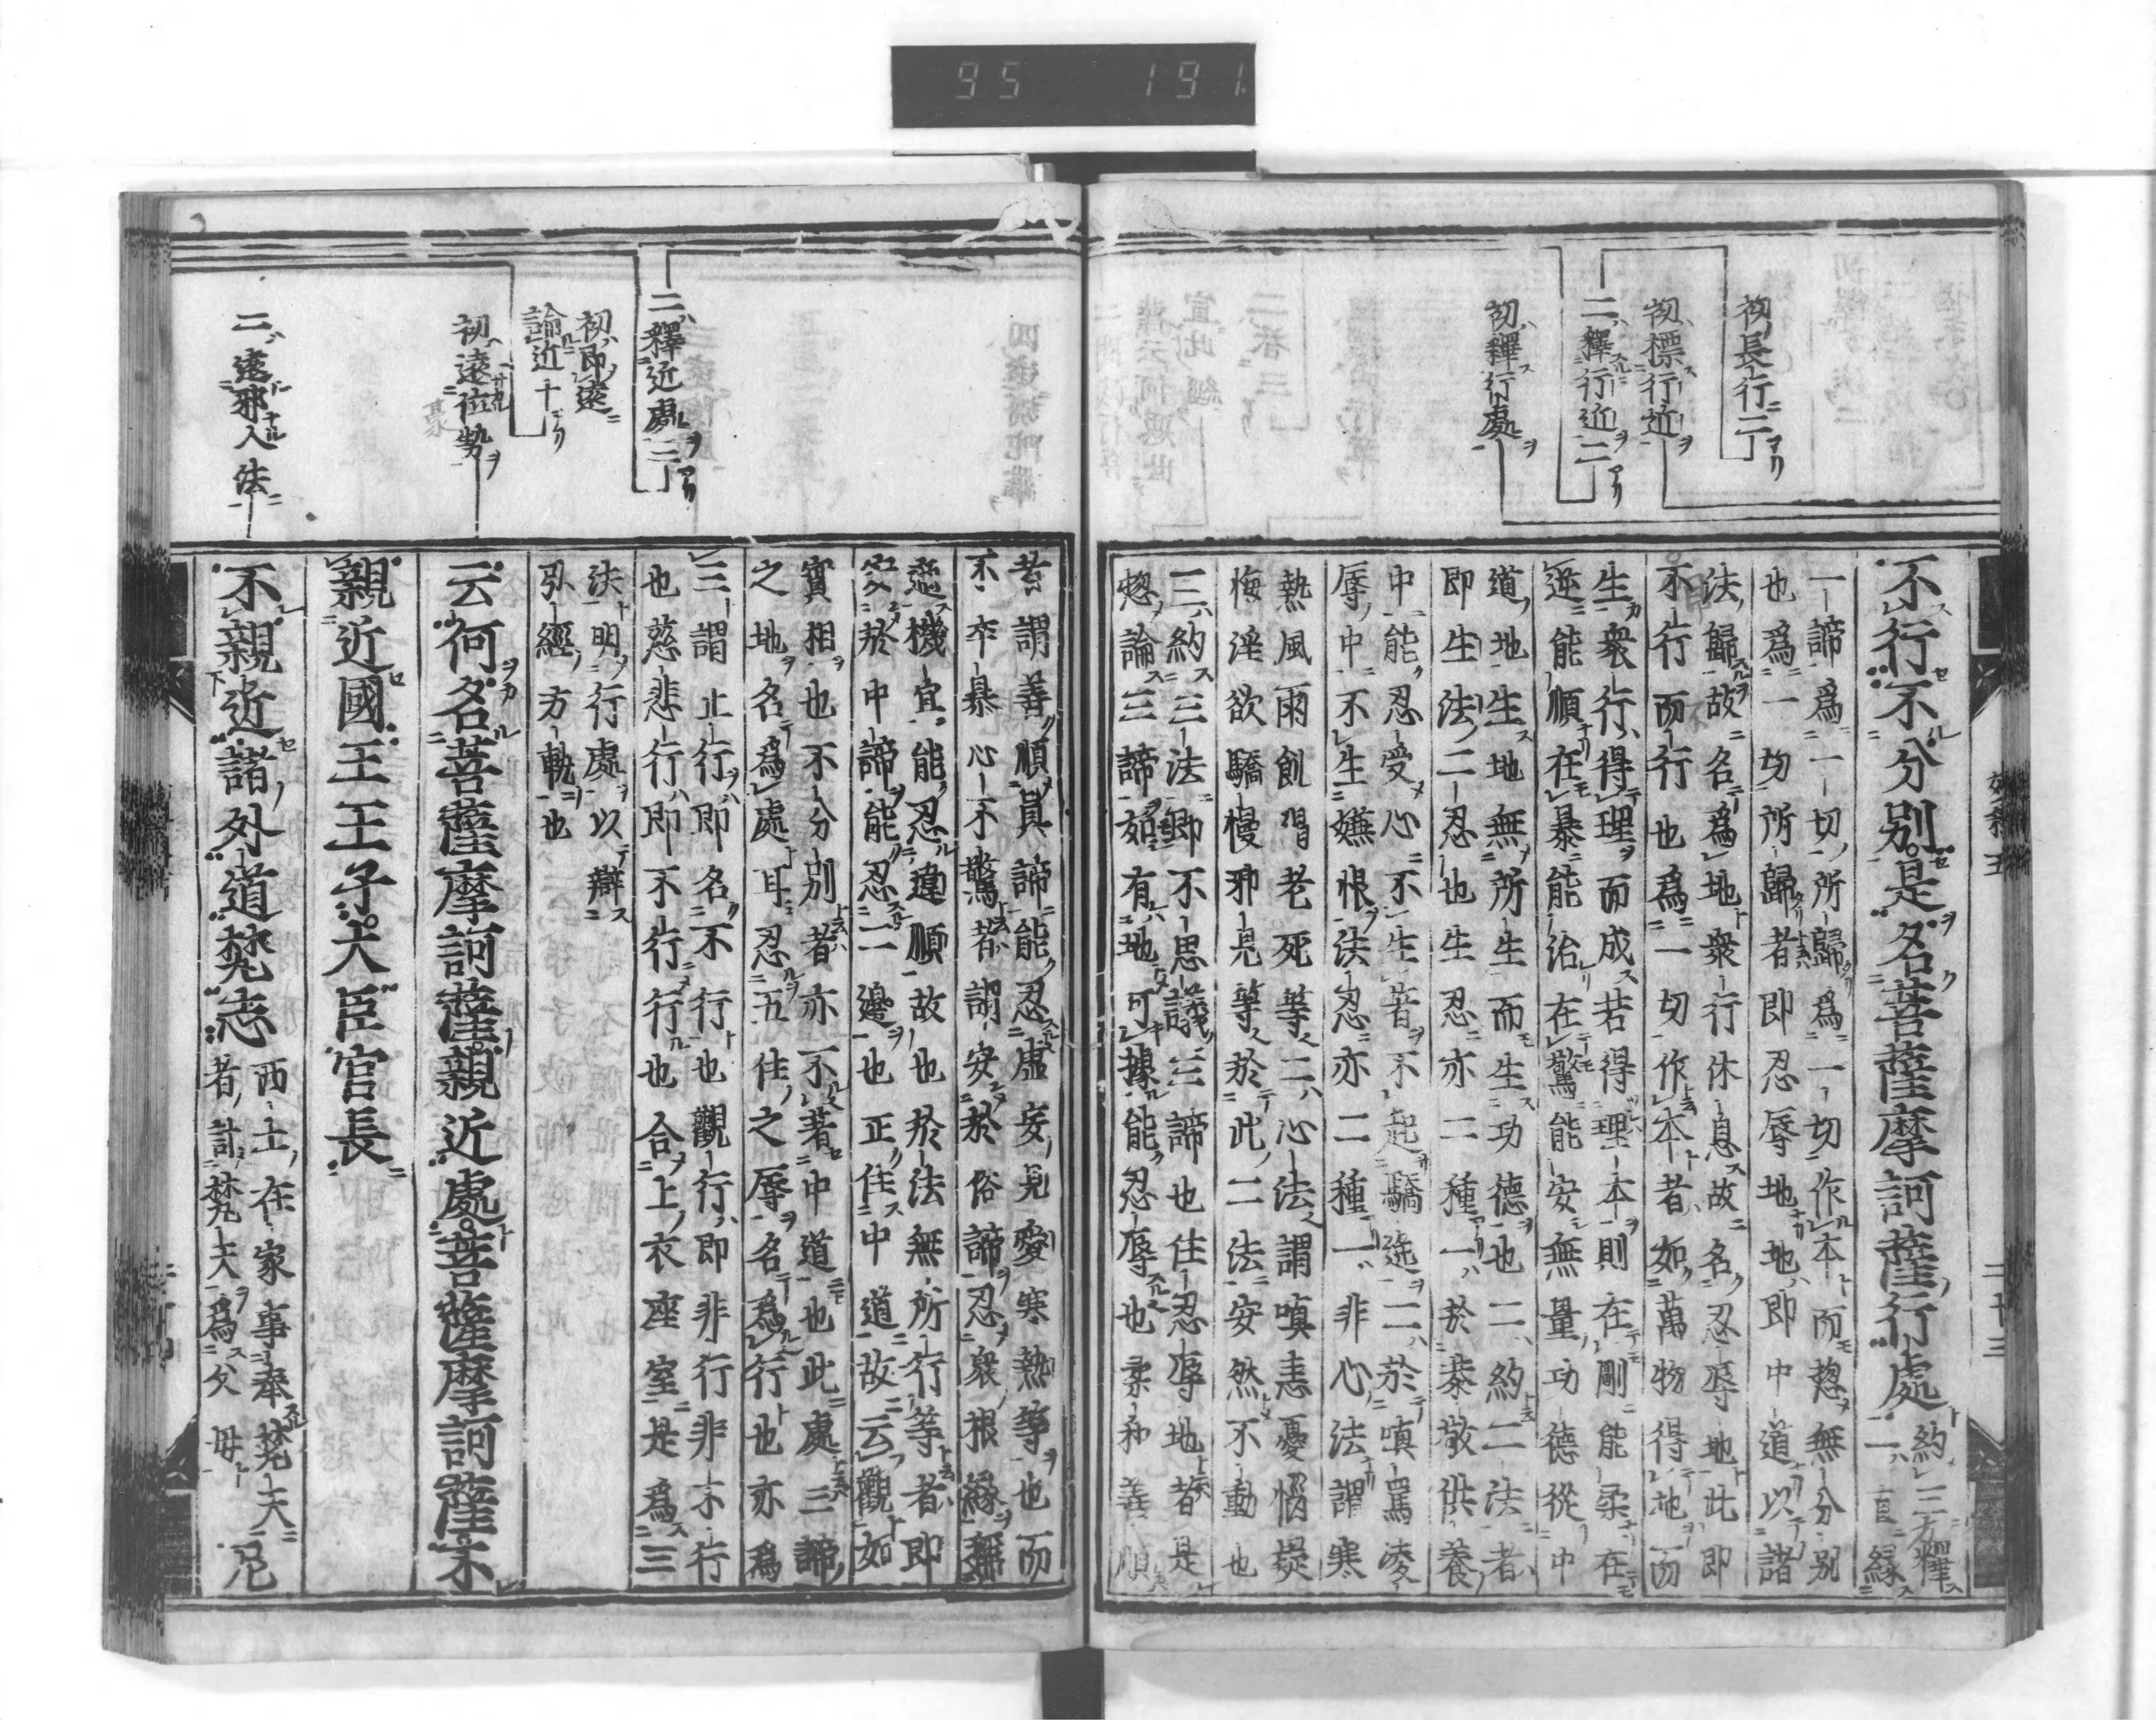 95 191
初長行二
初標行近
二釋行近二
初釋行處
不行不分別是名菩薩摩訶薩行處
約三方釋
一直緣
一諦爲一切所歸爲一切作本而揔無分別
也爲一切所歸者即忍辱地地即中道以諸
法歸故名爲地衆行休息故名忍辱地此即
不行而行也爲一切作本者如萬物得地而
生衆行得理而成若得理本則在剛能柔在
逆能順在暴能治在驚能安無量功德從中
道地生地無所生而生功德也二約二法者
即生法二忍也生忍亦二種一於恭敬供養
中能忍受心不生著不起驕逸二於嗔罵凌
辱中不生嫌恨法忍亦二種一非心法謂寒
熱風雨飢渴老死等二心法謂嗔恚憂惱疑
悔淫欲驕慢邪見等於此二法安然不動也
三約三法卽不思議三諦也住忍辱地者是
揔論三諦如有地可據能忍辱也柔和善順
者謂善順眞諦能忍虛妄見愛寒熱等也而
不卒暴心不驚者謂安於俗諦忍衆根緣稱
適機宜能忍違順故也於法無所行等者即
安於中諦能忍二邊也正住中道故云觀如
實相也不分別者亦不著中道也此處三諦
之地名爲處耳忍五住之辱名爲行也亦爲
三謂止行即名不行也觀行即非行非不行
也慈悲行即不行行也合上衣座室是爲三
法明行處以辯
弘經方軌也
二釋近處三
初即遠
論近十
初遠位勢
云何名菩薩摩訶薩親近處菩薩摩訶薩不
親近國王王子大臣官長
二遠邪人法
不親近諸外道梵志
西土在家事奉梵天
者計梵天爲父母
尼
二十三